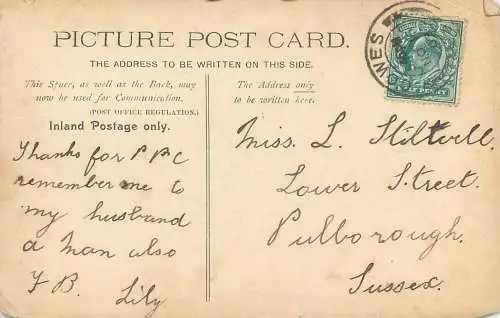 PICTURE POST CARD.
THE ADDRESS TO BE WRITTEN ON THIS SIDE.
This Space, as well as the Back, may
now be used for Communication.
(POST OFFICE REGULATION.)
Inland Postage only.
The Address only
to be written here.
WES
HALFPENNY
Thanks for P.P.C
remember me to
my husband
a man also
F B. Lily
Miss. L. Stilwell.
Lower Street.
Pulborough.
Sussex.